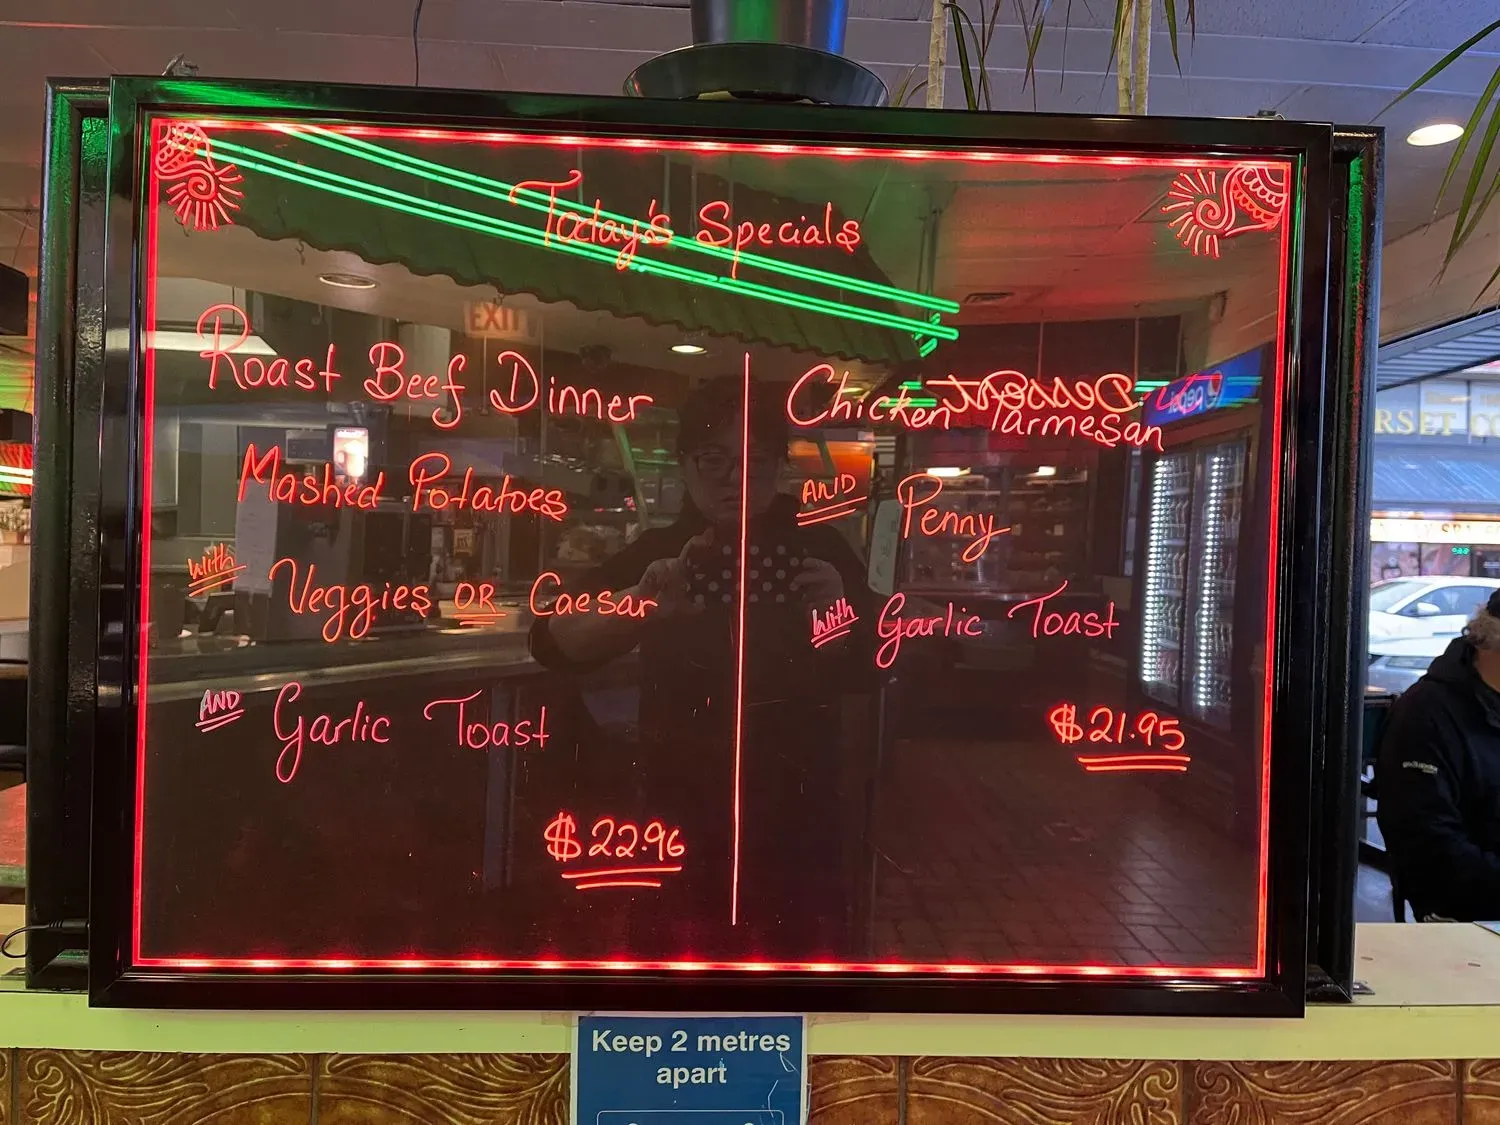 Today's Specials
EXIT
Roast Beef Dinner
Mashed Potatoes
With Veggies OR Caesar
AND Garlic Toast
$22.96
Chicken Parmesan
AND Penny
With Garlic Toast
$21.95
Dessert
Pepsi
RSET CO
Keep 2 metres
apart